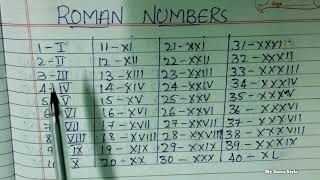 ROMAN NUMBERS
1-I 11-XI 21-XXI 31-XXXI
2-II 12-XII 22-XXII 32-XXXII
3-III 13-XIII 23-XXIII 33-XXXIII
4-IV 14-XIV 24-XXIV 34-XXXIV
5-V 15-XV 25-XXV 35-XXXV
6-VI 16-XVI 26-XXVI 36-XXXVI
7-VII 17-XVII 27-XXVII 37-XXXVII
8-VIII 18-XVIII 28-XXVIII 38-XXXVIII
9-IX 19-XIX 29-XXIX 39-XXXIX
10-X 20-XX 30-XXX 40-XL